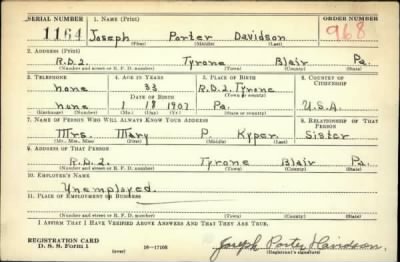 SERIAL NUMBER 1. NAME (Print) ORDER NUMBER
1164 Joseph Porter Davidson 968
(First) (Middle) (Last)
2. ADDRESS (Print)
R.D.2. Tyrone Blair Pa.
(Number and street or R. F. D. number) (Town) (County) (State)
3. TELEPHONE 4. AGE IN YEARS 5. PLACE OF BIRTH 6. COUNTRY OF CITIZENSHIP
none 33 R.D.2. Tyrone
DATE OF BIRTH (Town or county)
none 1 18 1907 Pa. U.S.A.
(Exchange) (Number) (Mo.) (Day) (Yr.) (State or country)
7. NAME OF PERSON WHO WILL ALWAYS KNOW YOUR ADDRESS 8. RELATIONSHIP OF THAT PERSON
Mrs. Mary P. Kyper Sister
(Mr., Mrs., Miss) (First) (Middle) (Last)
9. ADDRESS OF THAT PERSON
R.D.2. Tyrone Blair Pa.
(Number and street or R. F. D. number) (Town) (County) (State)
10. EMPLOYER'S NAME
Unemployed.
11. PLACE OF EMPLOYMENT OR BUSINESS
(Number and street or R. F. D. number) (Town) (County) (State)
I AFFIRM THAT I HAVE VERIFIED ABOVE ANSWERS AND THAT THEY ARE TRUE.
REGISTRATION CARD
D. S. S. Form 1 (over) 16—17105 Joseph Porter Davidson.
(Registrant's signature)